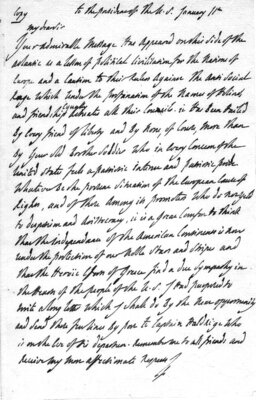 Copy to the president of the U.S. January 1st
my dear Sir
Your Admirable Message Has Appeared on this Side of the
atlantic as a lesson of political Civilisation for the Nations of
Europe and a Caution to their Rulers Against the Anti Social
league which Under the profanation of the Names of Holiness
and friendship Country their Councils. it Has Been hailed
by Every friend of liberty and By None, of Course, More than
by Your Old Brother Soldier Who in Every Concern of the
United States feels a patriotic Interest and patriotic pride
Whatever Be the present Situation of the European Cause of
Rights, and of those Among its promoters Who do Not yield
to despotism and Aristocracy, it is a Great Comfort to think
that the Independance of the American Continent is Now
under the protection of our Noble Stars and Stripes and
that the Heroic Efforts of Greece find a due Sympathy in
the Hearts of the people of the U.S. I Had purposed to
write a long letter which I Shall do By the Next opportunity
and Send these few lines By post to Captain
who
is on the Eve of His departure. Remember me to all friends and
Receive my most affectionate Respects